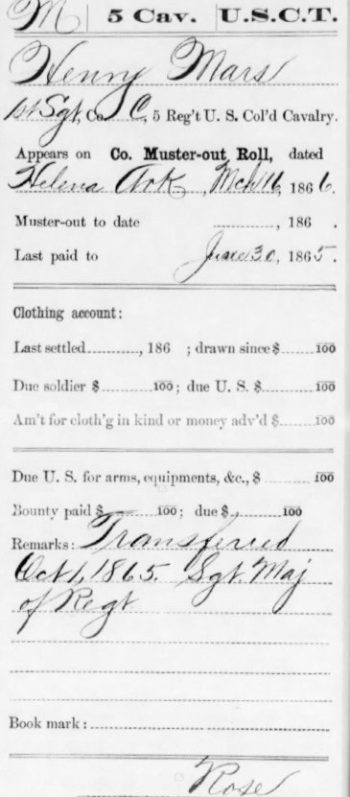 M | 5 Cav. | U.S.C.T.
Henry Mars
1st Sgt, Co. C, 5 Reg't U. S. Col'd Cavalry.
Appears on Co. Muster-out Roll, dated
Helena Ark, Mch 16, 1866.
Muster-out to date ............, 186 .
Last paid to June 30, 1865.
Clothing account:
Last settled............, 186 ; drawn since $........100
Due soldier $............100; due U. S. $............100
Am't for cloth'g in kind or money adv'd $........100
Due U. S. for arms, equipments, &c., $........100
Bounty paid $............100; due $............100
Remarks: Transferred
Oct 1, 1865. Sgt. Maj
of Regt
Book mark:
Rose